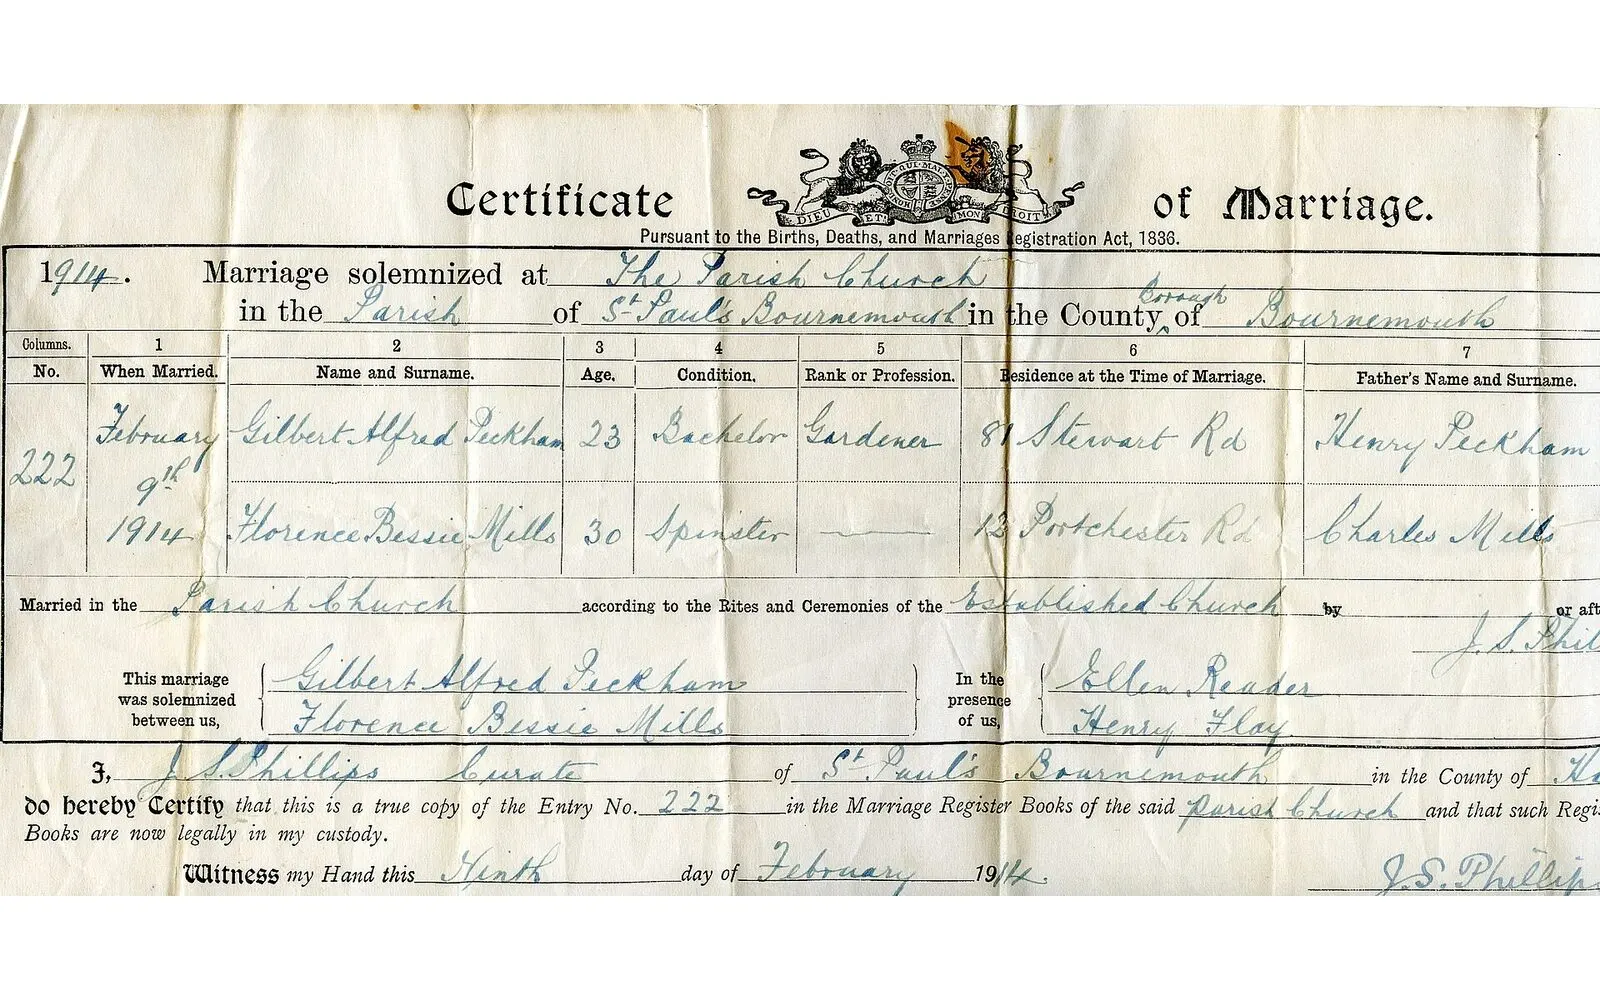 Certificate of Marriage.
DIEU ET MON DROIT
Pursuant to the Births, Deaths, and Marriages Registration Act, 1836.
1914. Marriage solemnized at The Parish Church
in the Parish of St Paul's Bournemouth in the County Borough of Bournemouth
Columns. 1 2 3 4 5 6 7
No. When Married. Name and Surname. Age. Condition. Rank or Profession. Residence at the Time of Marriage. Father's Name and Surname.
222 February 9th 1914 Gilbert Alfred Peckham 23 Bachelor Gardener 81 Stewart Rd Henry Peckham
Florence Bessie Mills 30 Spinster — 12 Portchester Rd Charles Mills
Married in the Parish Church according to the Rites and Ceremonies of the Established Church by or aft
J. S. Phil
This marriage was solemnized between us, Gilbert Alfred Peckham In the presence of us, Ellen Reader
Florence Bessie Mills Henry Flay
I, J. S. Phillips Curate of St Paul's Bournemouth in the County of Ha
do hereby Certify that this is a true copy of the Entry No. 222 in the Marriage Register Books of the said Parish Church and that such Regis
Books are now legally in my custody.
Witness my Hand this Ninth day of February 1914.
J. S. Phillips